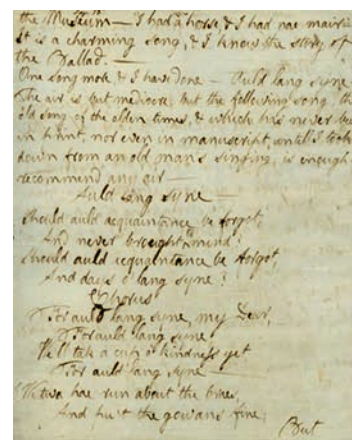 the Museum — I had a horse, & I had nae mairie
It is a charming song, & I know the story of
the Ballad. —
One song more, & I have done — Auld lang syne
The air is but mediocre; but the following song, the
old song of the olden times, & which has never been
in print, nor even in manuscript, untill I took
down from an old man's singing; is enough
recommend any air —
Auld lang syne —
Should auld acquaintance be forgot,
And never brought to mind?
Should auld acquaintance be forgot,
And days o' lang syne?
Chorus
For auld lang syne, my Dear,
For auld lang syne,
We'll tak a cup o' kindness yet
For auld lang syne —
We twa hae run about the braes,
And pu't the gowans fine;
But